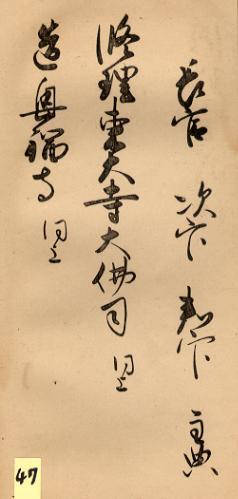 長官 次官 判官 主典
修理東大寺大佛司 同上
造興福寺 同上
47